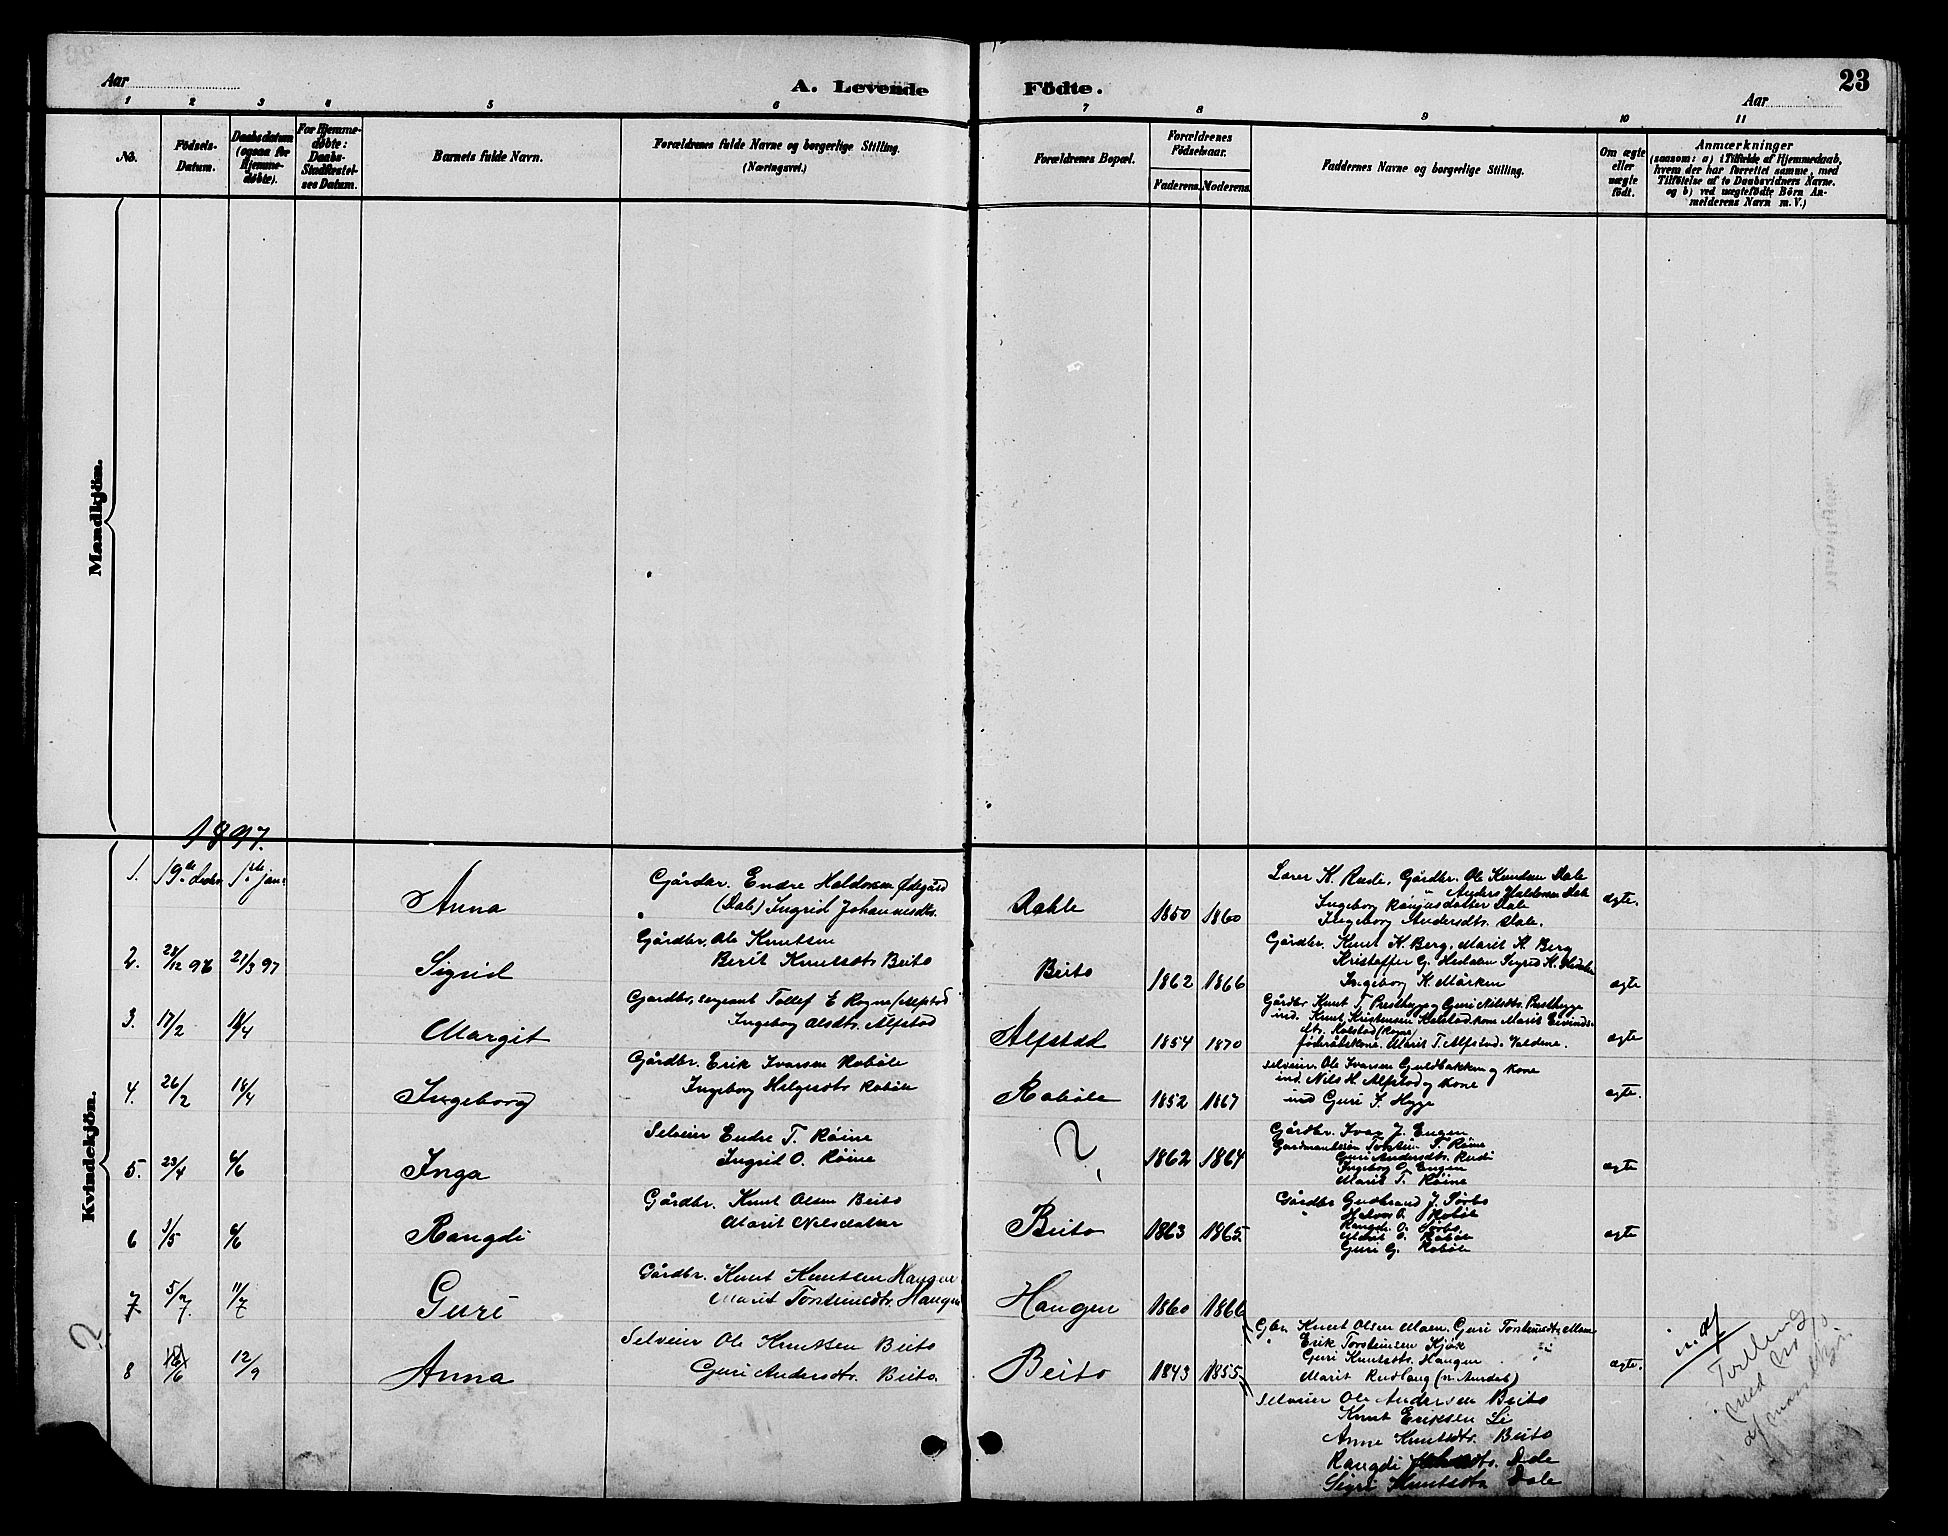 Aar
A. Levende Födte.
23
Aar
1 2 3 4 5 6 7 8 9 10 11
No.
Födsels-
Datum.
Daabsdatum
(ogsaa for
Hjemme-
døbte).
For Hjemme-
døbte:
Daabs-
Stadfæstel-
ses Datum.
Barnets fulde Navn.
Forældrenes fulde Navne og borgerlige Stilling.
(Næringsvei.)
Forældrenes Bopæl.
Forældrenes
Födselsaar.
Faderens. Moderens.
Faddernes Navne og borgerlige Stilling.
Om ægte
eller
uægte
født.
Anmærkninger
(saasom: a) i Tilfælde af Hjemmedaab,
hvem der har forrettet samme, med
Tilføielse af to Daabsvidners Navne.
og b) ved uægtefödte Börn An-
melderens Navn m. V.)
Mandkjön.
Kvindekjön.
1897.
1. 19de 1ste jan.
Anna
Gårdbr. Endre Haldorsen Ødegård
(Dale) Ingrid Johannesdtr.
Dahle 1850 1860
Lærer K. Rude, Gårdbr. Ole Knudsen Dale
" Anders Haldorsen Dale
Ingeborg Dale
Ingeborg Andersdtr. Dale.
ægte.
2. 28/12 96 21/3 97
Sigrid
Gårdbr. Ole Knutsen
Berit Knutsdtr Beito
Beito 1862 1866
Gårdbr. Knut K. Berg, Marit K. Berg
Kristoffer G. Hedalen Sigrid K. Hedalen
Ingeborg K. Mørken
ægte
3. 17/2 18/4
Margit
Gårdbr, sergeant Tollef E Rogne/Alfstad
Ingeborg Olsdtr. Alfstad
Alfstad 1854 1870
Gårdbr Knut T. Presthygg og Guri Nilsdtr. Presthygge
ind. Knut Kristensen Kolstad kone Marit Eivinds-
dtr. Kolstad (Rogne)
føderådskone Marit T. Alfstad. Valdene.
ægte
4. 26/2 18/4
Ingeborg
Gårdbr. Erik Ivarsen Robøle
Ingeborg Helgesdtr Robøle
Robøle 1852 1867
selveier. Ole Ivarsen Guldbakken og Kone
ind. Nils H. Alfstad og Kone
ind Guri S. Hygge
ægte.
5. 23/4 6/6
Inga
Selveier Endre T. Røine
Ingrid O. Røine
? 1862 1864
Gårdbr. Ivar J. Engen
Gardmandssøn Torstein T. Røine
Guri Andersdtr. Rudi
Ingeborg O. Engen
Marit T. Røine
ægte
6 1/5 6/6
Rangdi
Gårdbr. Knut Olsen Beito
Marit Nilsdatter
Beito 1863 1865
Gårdbr Gudbrand J. Sørbø
" Halvor O. Robøle
Rangdi O. Sørbø
Marit O. Robøle
Guri G. Robøle
ægte
7 5/7 11/7
Guri
Gårdbr. Knut Knutsen Haugen
Marit Torsteinsdtr. Haugen
Haugen 1860 1866
Gbr. Knut Olsen Moen, Guri Torsteinsdtr. Moen
" Erik Torsteinsen Kjøk
Guri Knutsdtr. Haugen
Marit Rudlang
ægte.
?
8 12/9
Anna
Selveier Ole Knutsen Beito
Guri Andersdtr. Beito.
Beito 1843 1855
Selveier Ole Andersen Beito
Knut Eriksen Li
Anne Knutsdtr. Beito
Rangdi Dale
Sigri Knutsdtr Dale
Tvilling
med No
af mandkjøn.